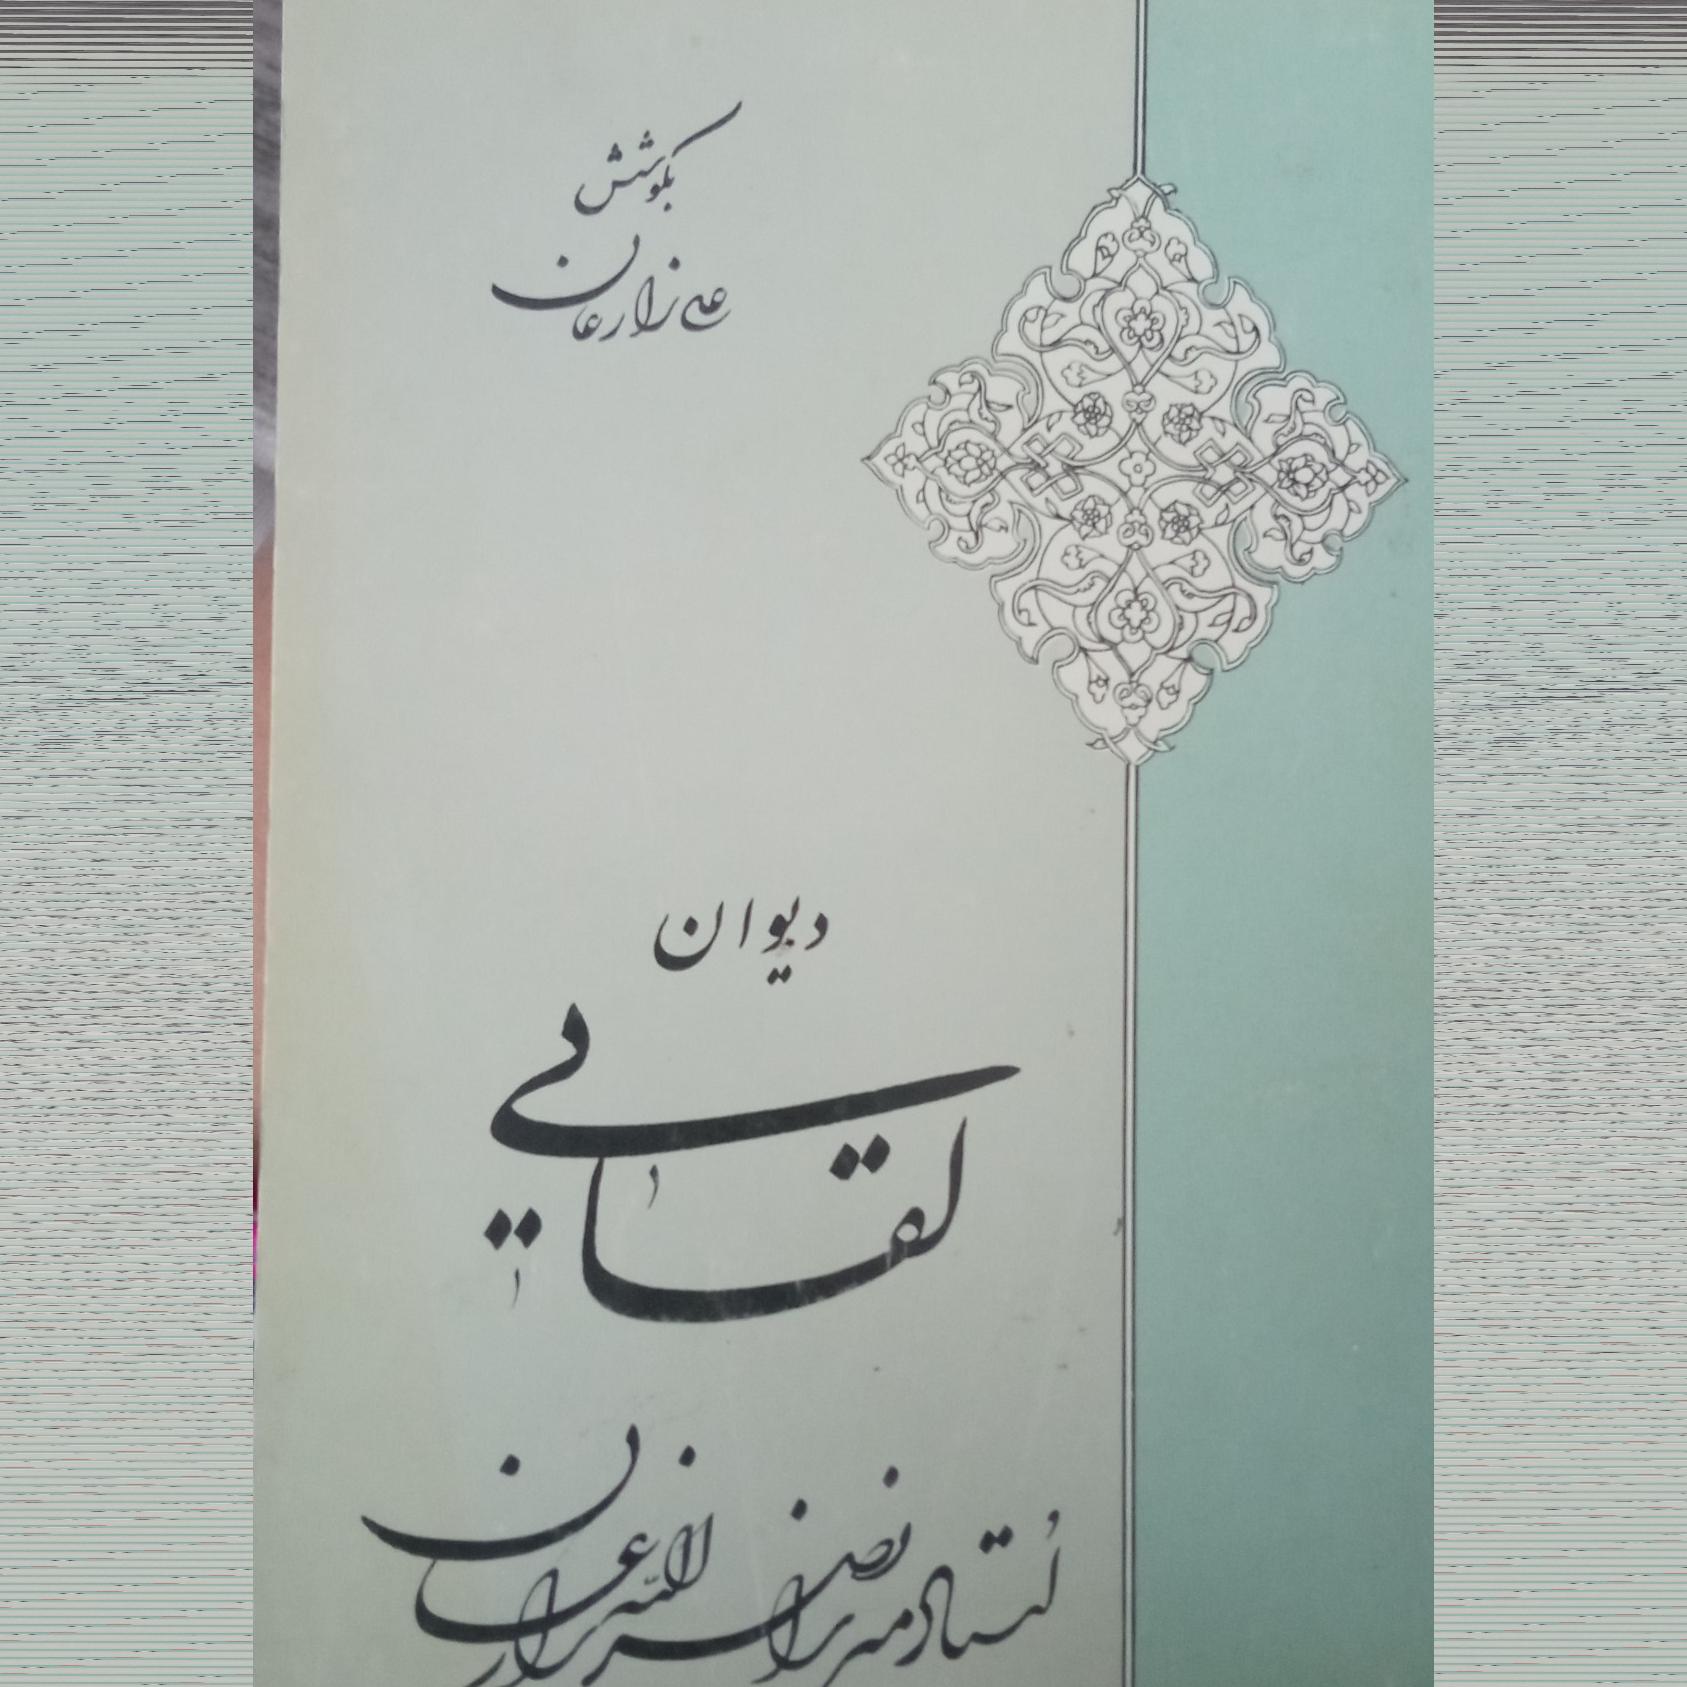 بکوشش
علی زارعان
دیوان
لقایی
استاد میرزا نصراللّه زارعان